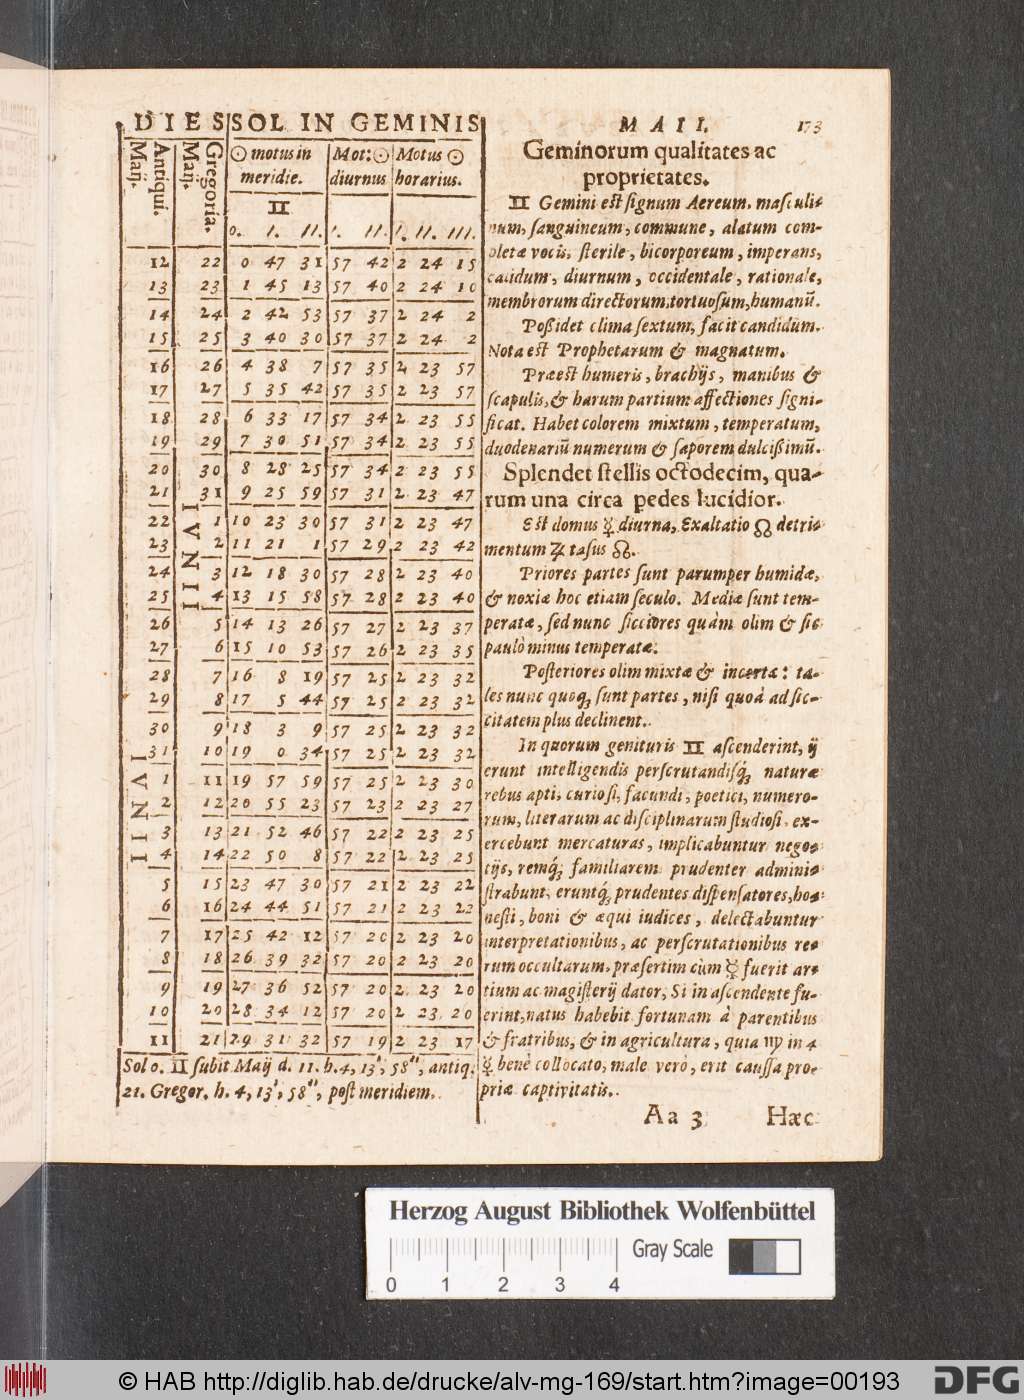 DIES SOL IN GEMINIS
Antiqui. Maij.
Gregoria. Maij.
☉ motus in meridie.
Mot: ☉ diurnus
Motus ☉ horarius.
♊
0. I. II. I. II. I. II. III.
12 22 0 47 31 57 42 2 24 15
13 23 1 45 13 57 40 2 24 10
14 24 2 42 53 57 37 2 24 2
15 25 3 40 30 57 37 2 24 2
16 26 4 38 7 57 35 2 23 57
17 27 5 35 42 57 35 2 23 57
18 28 6 33 17 57 34 2 23 55
19 29 7 30 51 57 34 2 23 55
20 30 8 28 25 57 34 2 23 55
21 31 9 25 59 57 31 2 23 47
IVNII
22 1 10 23 30 57 31 2 23 47
23 2 11 21 1 57 29 2 23 42
24 3 12 18 30 57 28 2 23 40
25 4 13 15 58 57 28 2 23 40
26 5 14 13 26 57 27 2 23 37
27 6 15 10 53 57 26 2 23 35
28 7 16 8 19 57 25 2 23 32
29 8 17 5 44 57 25 2 23 32
30 9 18 3 9 57 25 2 23 32
31 10 19 0 34 57 25 2 23 32
IVNII
1 11 19 57 59 57 25 2 23 30
2 12 20 55 23 57 23 2 23 27
3 13 21 52 46 57 22 2 23 25
4 14 22 50 8 57 22 2 23 25
5 15 23 47 30 57 21 2 23 22
6 16 24 44 51 57 21 2 23 22
7 17 25 42 12 57 20 2 23 20
8 18 26 39 32 57 20 2 23 20
9 19 27 36 52 57 20 2 23 20
10 20 28 34 12 57 20 2 23 20
11 21 29 31 32 57 19 2 23 17
Sol 0. ♊ subit Maij d. 11. h. 4, 13', 58'', antiq.
21. Gregor. h. 4, 13', 58'', post meridiem.
MAII. 173
Geminorum qualitates ac
proprietates.
♊ Gemini est signum Aereum, masculi-
num, sanguineum, commune, alatum com-
pletæ vocis, sterile, bicorporeum, imperans,
calidum, diurnum, occidentale, rationale,
membrorum directorum, tortuosum, humanū.
Possidet clima sextum, facit candidum.
Nota est Prophetarum & magnatum.
Præest humeris, brachijs, manibus &
scapulis, & harum partium affectiones signi-
ficat. Habet colorem mixtum, temperatum,
duodenariū numerum & saporem dulcissimū.
Splendet stellis octodecim, qua-
rum una circa pedes lucidior.
Est domus ☿ diurna, Exaltatio ☊ detri-
mentum ♃ casus ☊.
Priores partes sunt parumper humidæ,
& noxiæ hoc etiam seculo. Mediæ sunt tem-
peratæ, sed nunc sicciores quàm olim & sic
paulò minus temperatæ.
Posteriores olim mixtæ & incertæ: ta-
les nunc quoq; sunt partes, nisi quod ad sic-
citatem plus declinent.
In quorum genituris ♊ ascenderint, ij
erunt intelligendis perscrutandisq; naturæ
rebus apti, curiosi, facundi, poetici, numero-
rum, literarum ac disciplinarum studiosi, ex-
ercebunt mercaturas, implicabuntur nego-
tijs, remq; familiarem prudenter admini-
strabunt, eruntq; prudentes dispensatores, ho-
nesti, boni & æqui iudices, delectabuntur
interpretationibus, ac perscrutationibus re-
rum occultarum, præsertim cùm ☿ fuerit ar-
tium ac magisterij dator, Si in ascendente fu-
erint, natus habebit fortunam à parentibus
& fratribus, & in agricultura, quia ♍ in 4
☿ benè collocato, male verò, erit caussa pro-
priæ captivitatis.
Aa 3 Hæc
Herzog August Bibliothek Wolfenbüttel
Gray Scale
0 1 2 3 4
© HAB http://diglib.hab.de/drucke/alv-mg-169/start.htm?image=00193
DFG